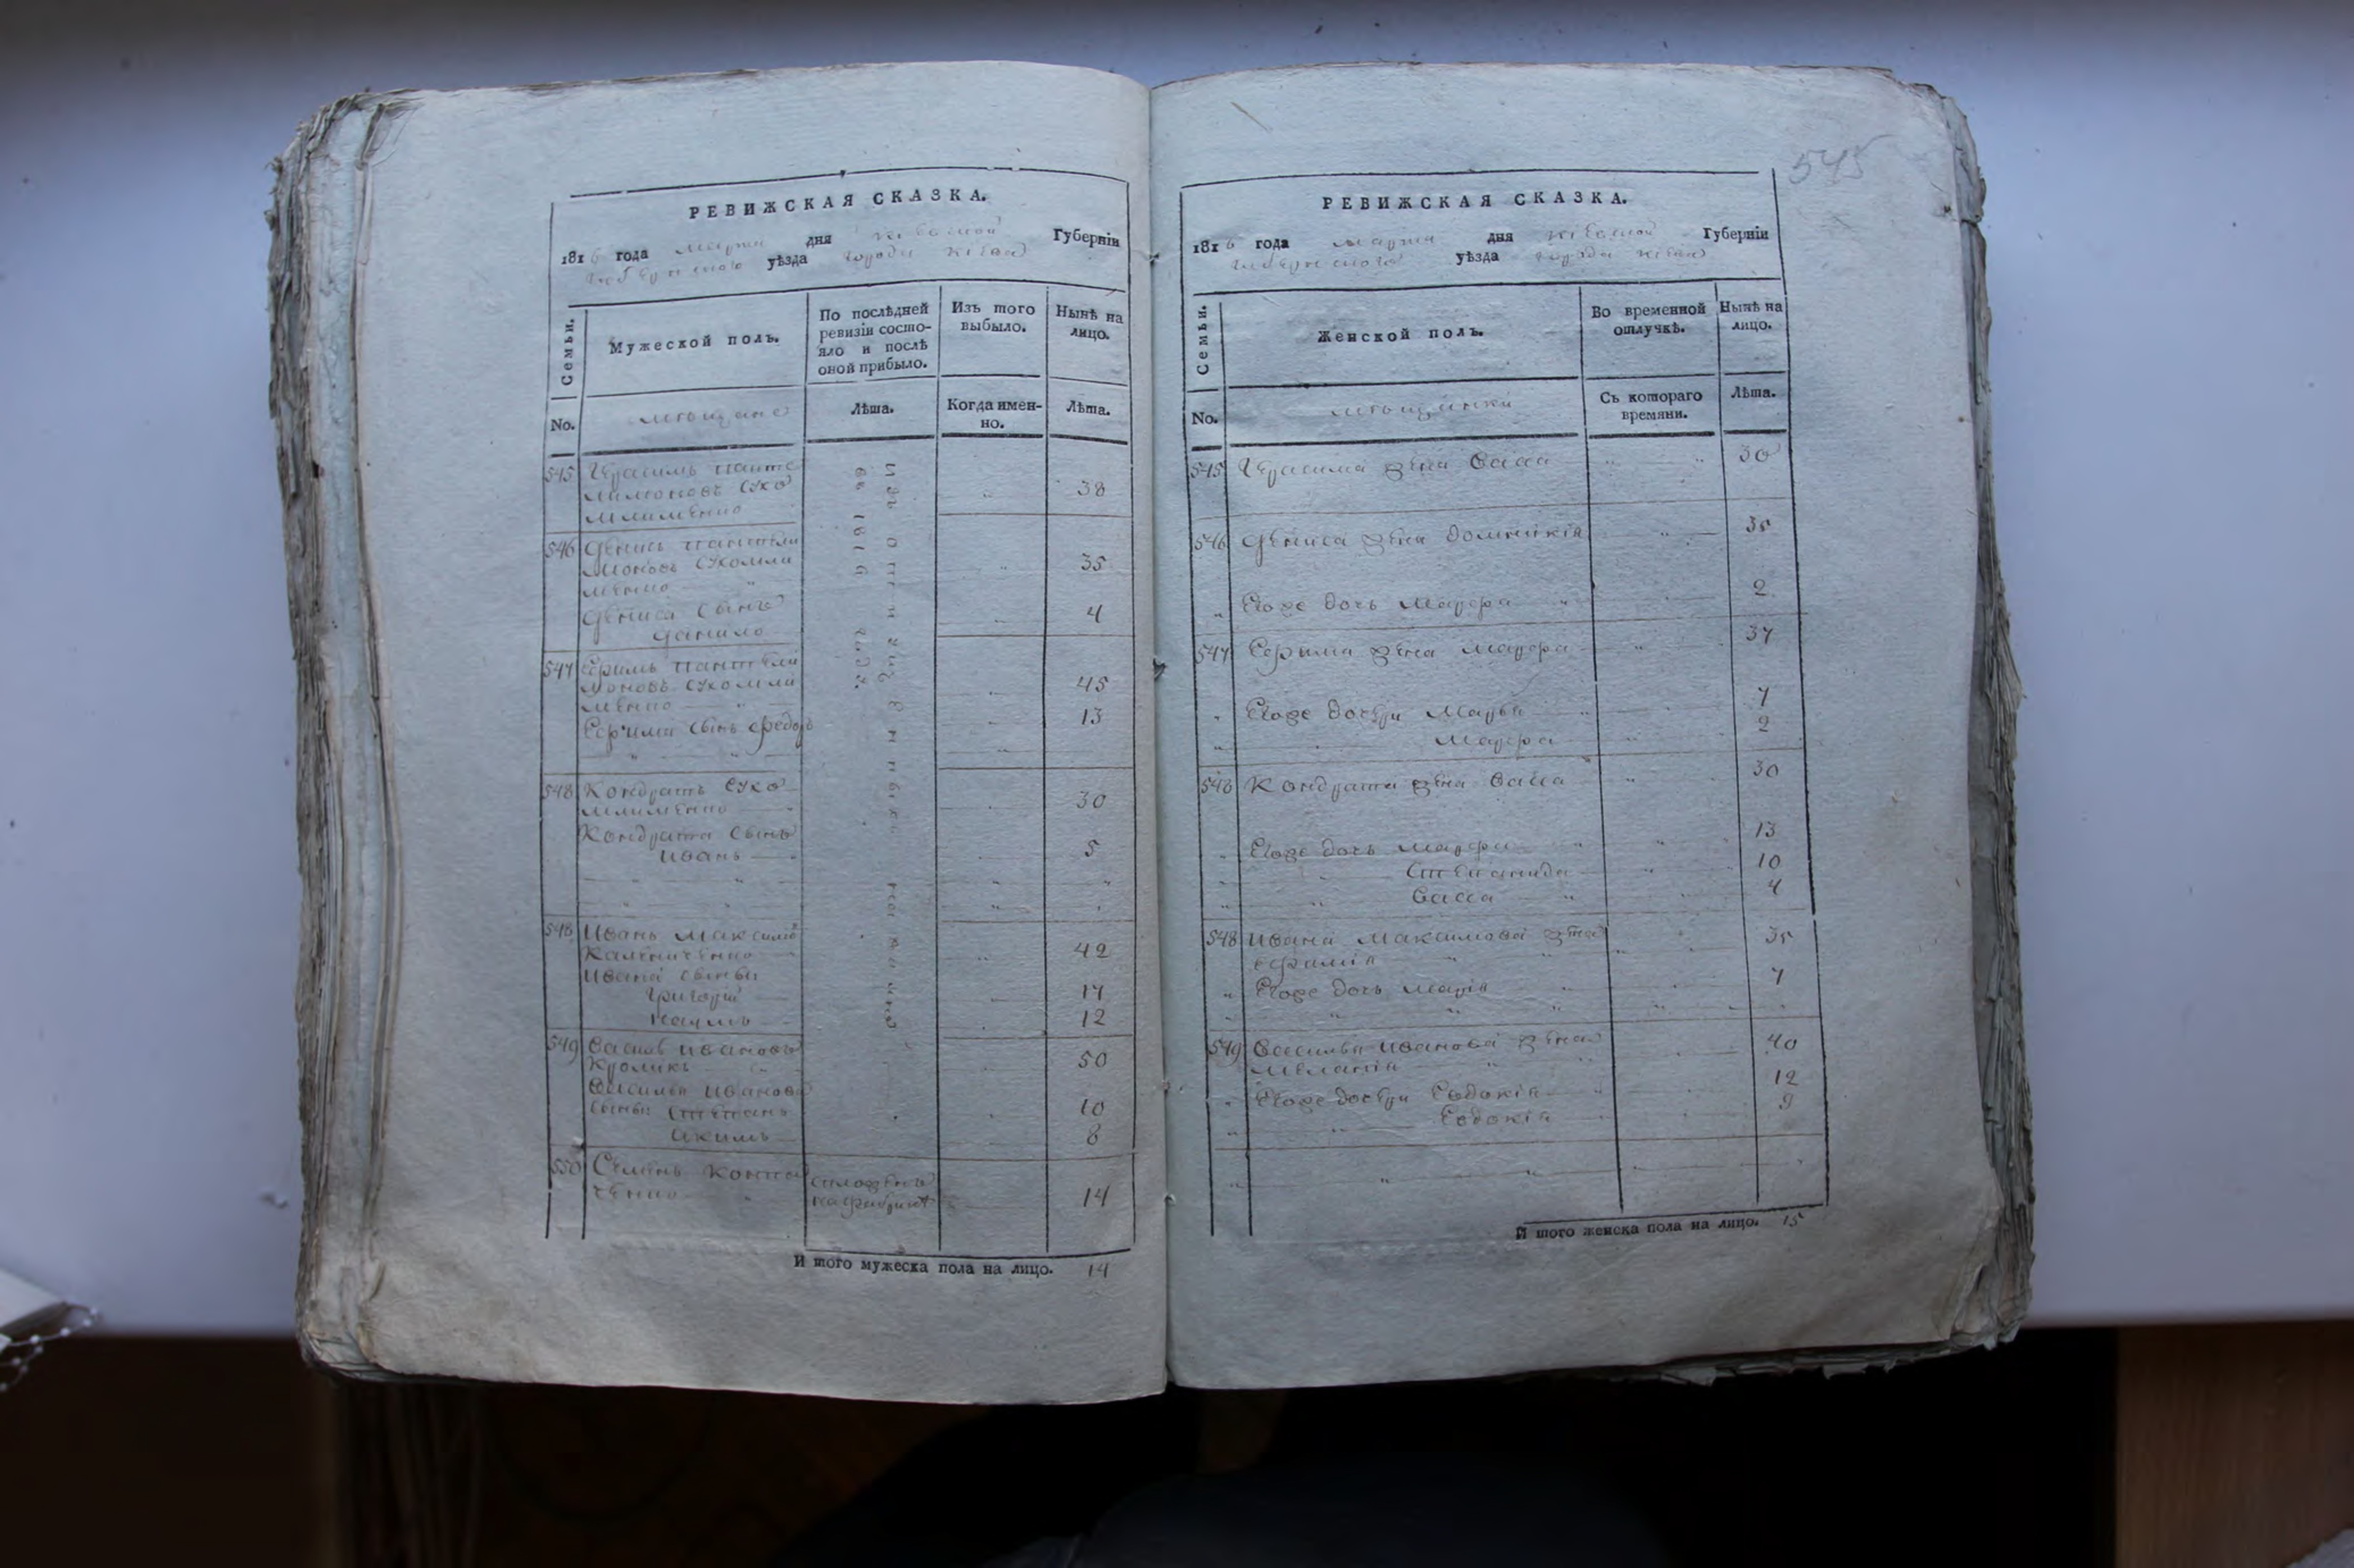 РЕВИЖСКАЯ СКАЗКА.
1816 года марта дня Кіевской Губерніи
уѣзда города Кіева
Семьи.
Мужеской полъ.
По послѣдней
ревизіи состо-
яло и послѣ
оной прибыло.
Изъ того
выбыло.
Нынѣ на
лицо.
No.
мѣщане
Лѣта.
Когда имен-
но.
Лѣта.
545 Герасимъ Панте
лимоновъ Сухо
млиненко 38
546 Денисъ Пантели
моновъ Сухомли
ненко 35
Дениса сынъ
Данило 4
547 Ефимъ Пантели
моновъ Сухомли
ненко 45
Ефима сынъ Федоръ 13
548 Кондратъ Сухо
млиненко 30
Кондрата сынъ
Иванъ 5
548 Иванъ Максимо
Калениченко 42
Ивана сыны
Григорій 17
Наумъ 12
549 Василь Ивановъ
Кроликъ 50
Василья Иванова
сыны Степанъ 10
Акимъ 8
550 Семенъ
14
И того мужеска пола на лицо. 14
545
РЕВИЖСКАЯ СКАЗКА.
1816 года марта дня Кіевской Губерніи
уѣзда города Кіева
Семьи.
Женской полъ.
Во временной
отлучкѣ.
Нынѣ на
лицо.
No.
мѣщанки
Съ котораго
времяни.
Лѣта.
545 Герасима жена Васса 30
546 Дениса жена Домникія 35
Егоже дочь Мафра 2
547 Ефима жена Мафра 37
Егоже дочери Марья 7
Мафра 2
548 Кондрата жена Васса 30
Егоже дочь Мафра 13
Степанида 10
Васса 4
548 Ивана Максимова жена 35
Егоже дочь Марія 7
549 Василья Иванова жена 40
Меланія
Егоже дочери Евдокія 12
Евдокія 9
И того женска пола на лицо. 15